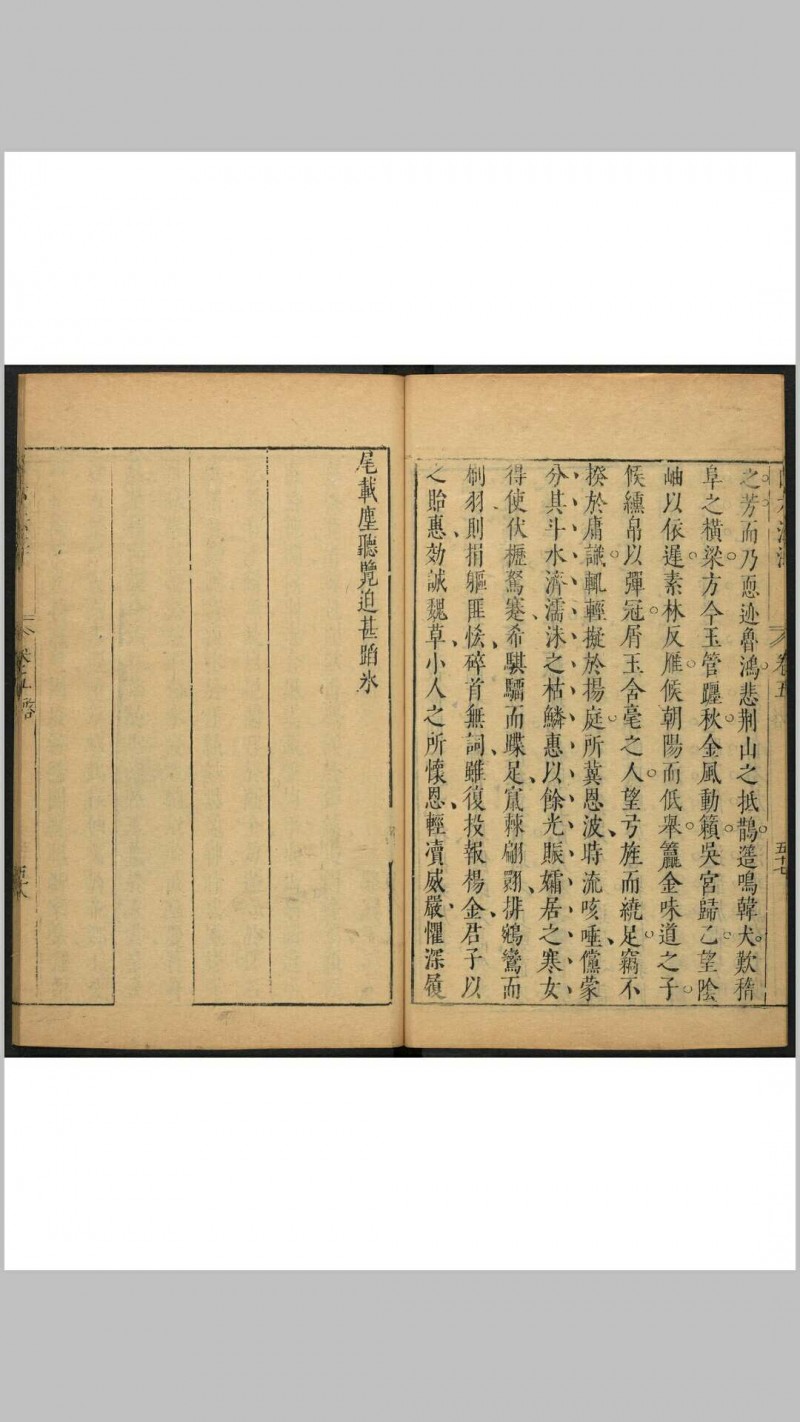 卷五
五十七
之芳而乃悳迹魯鴻悲荆山之抵鵲遙鳴韓犬歎稽
阜之橫梁方今玉管躔秋金風動籟吳宮歸乙望陰
岫以依遲素林反雁候朝陽而低舉籯金味道之子
候纁帛以彈冠屑玉含毫之人望弓旌而繞足竊不
揆於庸識輒輕擬於揚庭所冀恩波時流咳唾儻蒙
分其斗水濟濡沫之枯鱗惠以餘光賑孀居之寒女
得使伏櫪駑蹇希騏驥而蹀足竄棘翩翾排鵷鸞而
刷羽則捐軀匪悋碎首無詞雖復投報楊金君子以
之貽惠効誠魏草小人之所懷恩輕瀆威嚴懼深履
尾載塵聽覽迫甚蹈氷